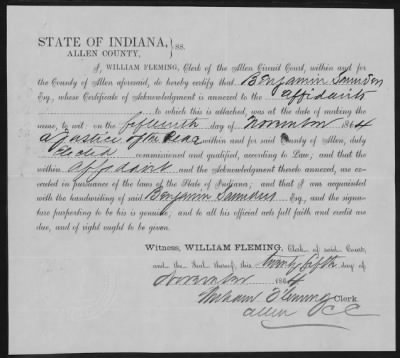 STATE OF INDIANA, } SS.
ALLEN COUNTY,
I, WILLIAM FLEMING, Clerk of the Allen Circuit Court, within and for
the County of Allen aforesaid, do hereby certify that Benjamin Saunders
Esq., whose Certificate of Acknowledgment is annexed to the affidavits
to which this is attached, was at the date of making
the same, to wit: on the fifteenth day of November 1864
a Justice of the Peace within and for said County of Allen, duly
elected commissioned and qualified, according to Law; and that the
within affidavit and the Acknowledgment thereto annexed, are ex-
ecuted in pursuance of the laws of the State of Indiana; and that I am acquainted
with the handwriting of said Benjamin Saunders Esq., and the signa-
ture purporting to be his is genuine; and to all his official acts full faith and credit are
due, and of right ought to be given.
Witness, WILLIAM FLEMING, Clerk of said Court,
and the Seal thereof, this twenty fifth day of
November 1864
William Fleming Clerk
Allen CCC